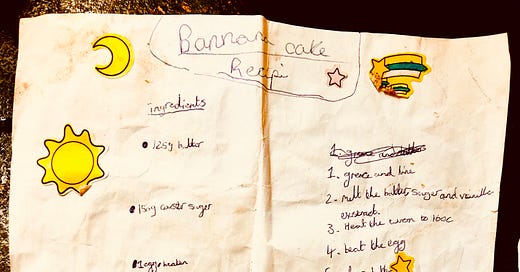 Bannan cake
Recipi
ingredients
125g butter
150g caster suger
1 egg beaten
1. grease and
1. grease and line
2. melt the butter, suger and vanilla
3. Heat the oven to 100c
4. beat the egg